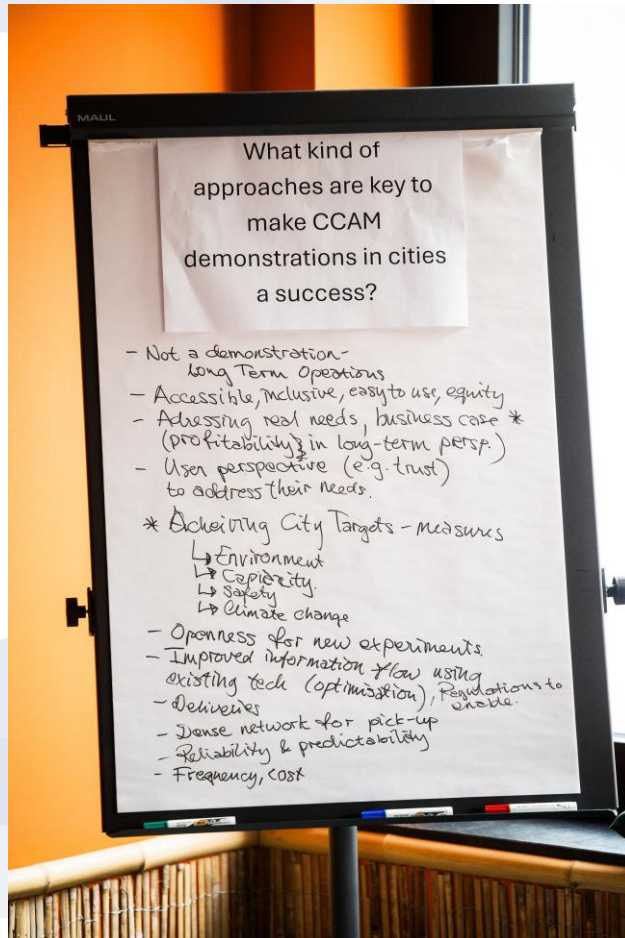 MAUL
What kind of
approaches are key to
make CCAM
demonstrations in cities
a success?
- Not a demonstration-
Long Term Operations
- Accessible, inclusive, easy to use, equity
- Adressing real needs, business case *
(profitability in long-term persp.)
- User perspective (e.g. trust)
to address their needs.
* Acheiving City Targets - measures
↳ Environment
↳ Capiacity
↳ Safety
↳ Climate change
- Openness for new experiments
- Improved information flow using
existing tech (optimisation), Regulations to
enable.
- Deliveries
- Dense network for pick-up
- Reliability & predictability
- Frequency, cost